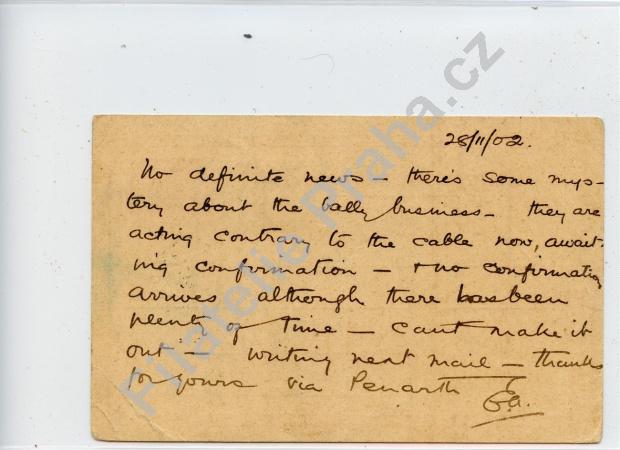 28/11/02.
No definite news - there's some mys-
tery about the bally business - they are
acting contrary to the cable now, await-
ing confirmation - & no confirmation
arrives although there has been
plenty of time - cant make it
out - writing next mail - thanks
for yours via Penarth
Filatelie Praha.cz